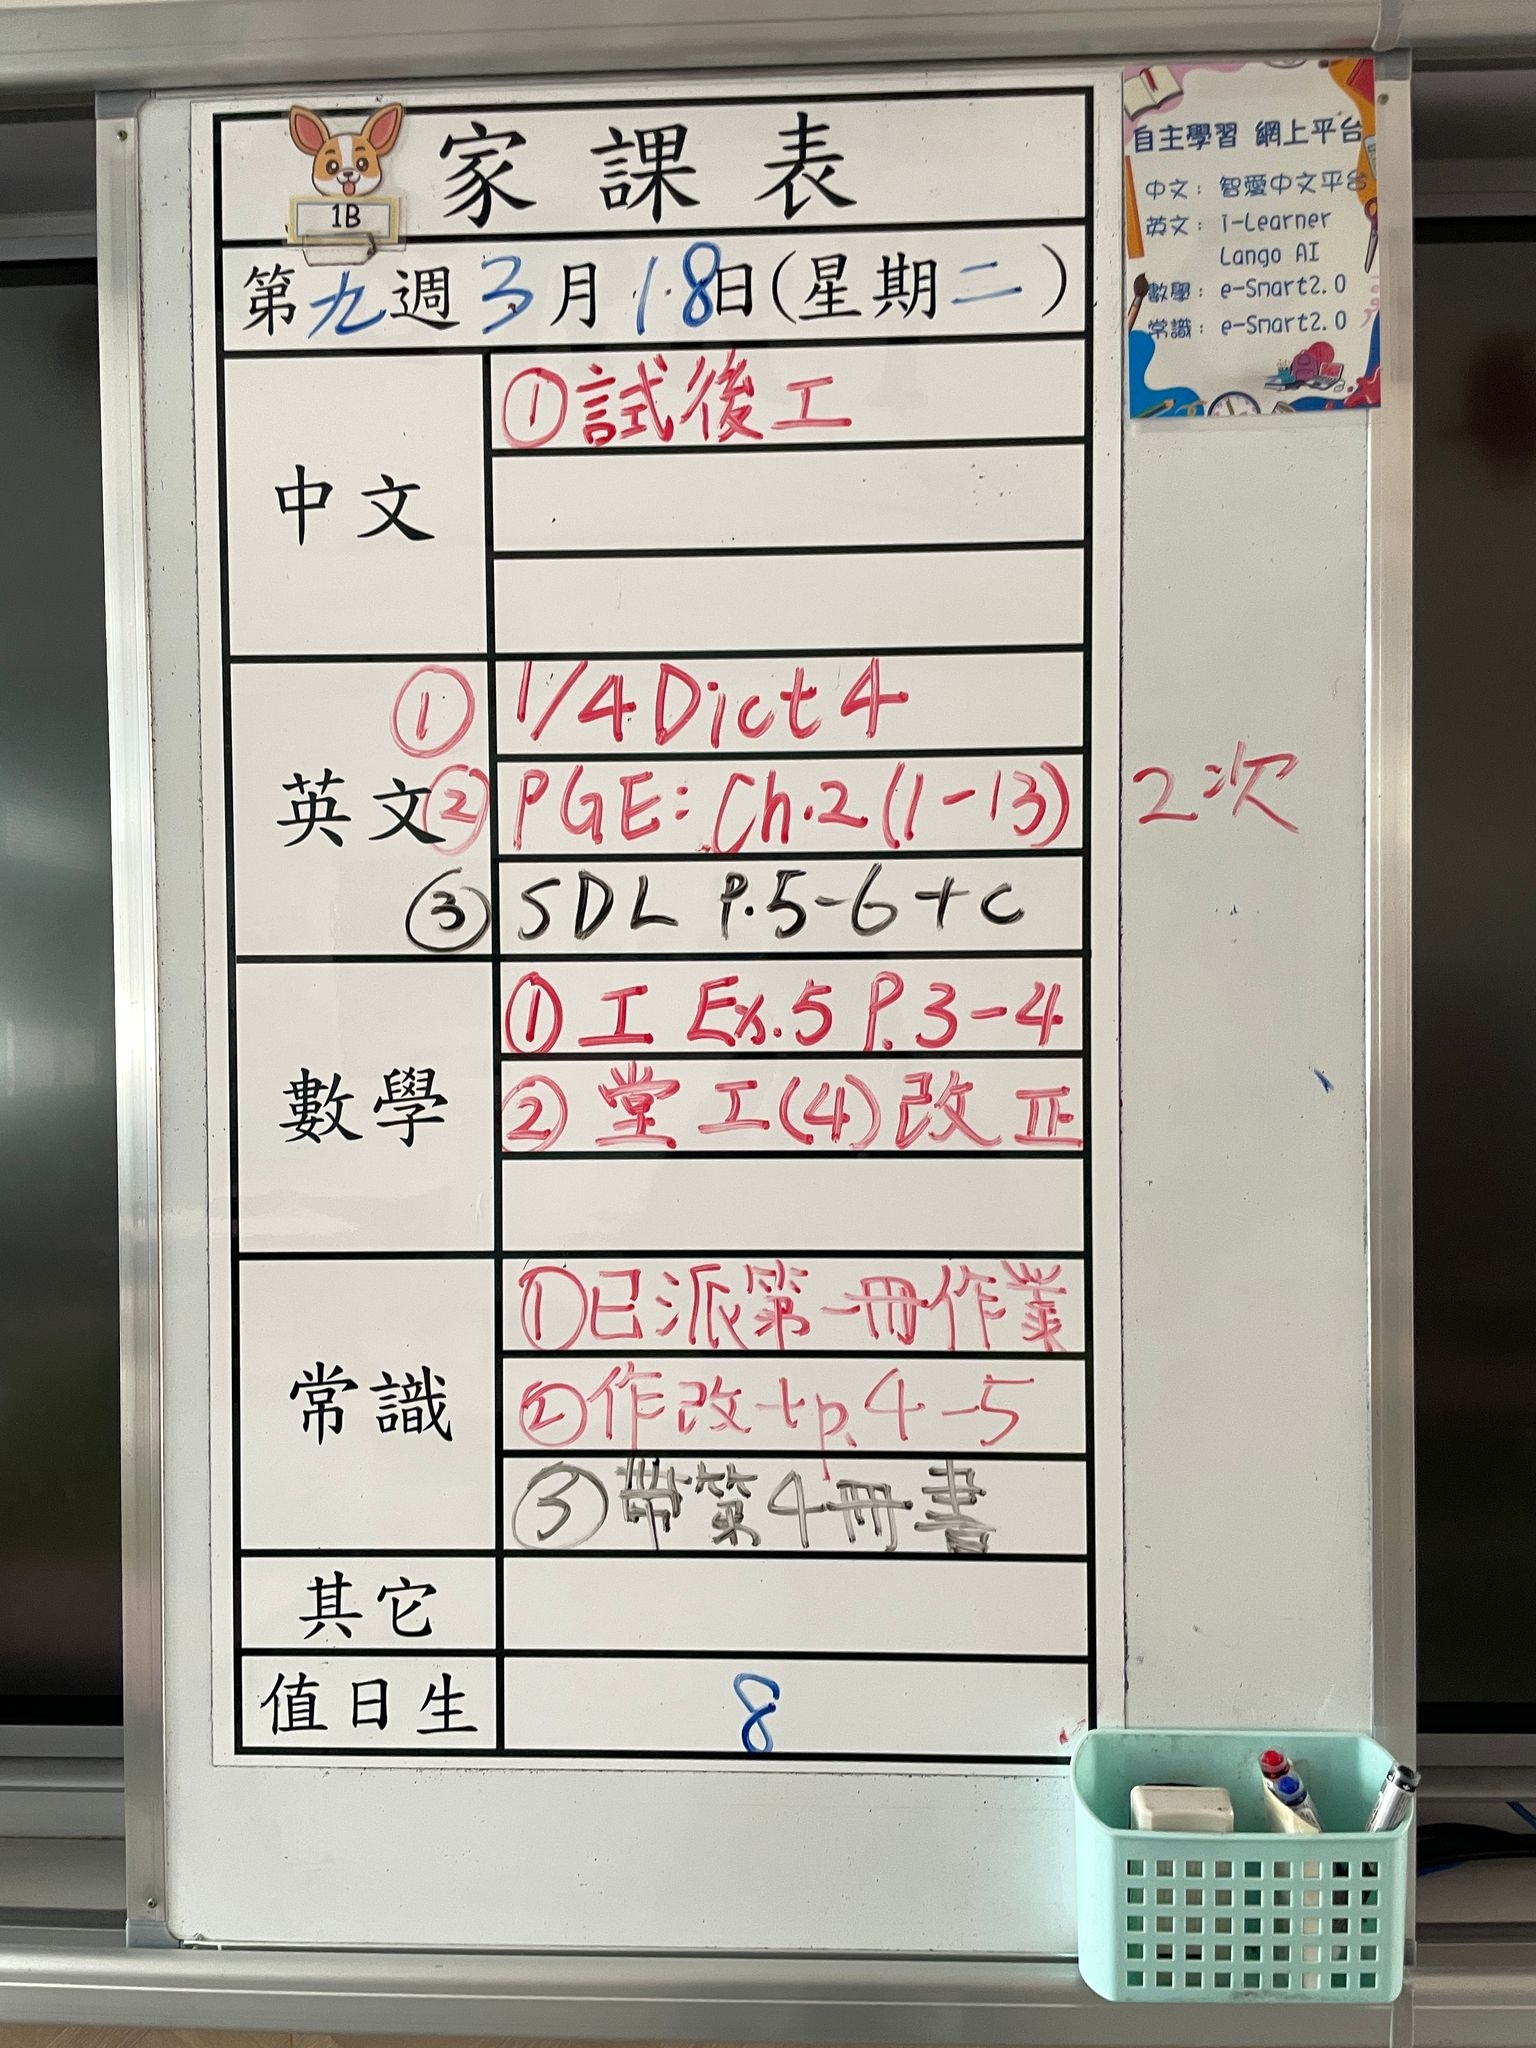 家課表
1B
第九週3月18日(星期二)
中文
①試後工
英文
① 1/4 Dict 4
② PGE: Ch.2 (1-13) 2次
③ SDL P.5-6+c
數學
① 工 Ex.5 P.3-4
② 堂工(4)改正
常識
①已派第一冊作業
②作改+p.4-5
③帶第4冊書
其它
值日生
8
自主學習 網上平台
中文：智愛中文平台
英文：i-Learner
Lango AI
數學：e-Smart2.0
常識：e-Smart2.0